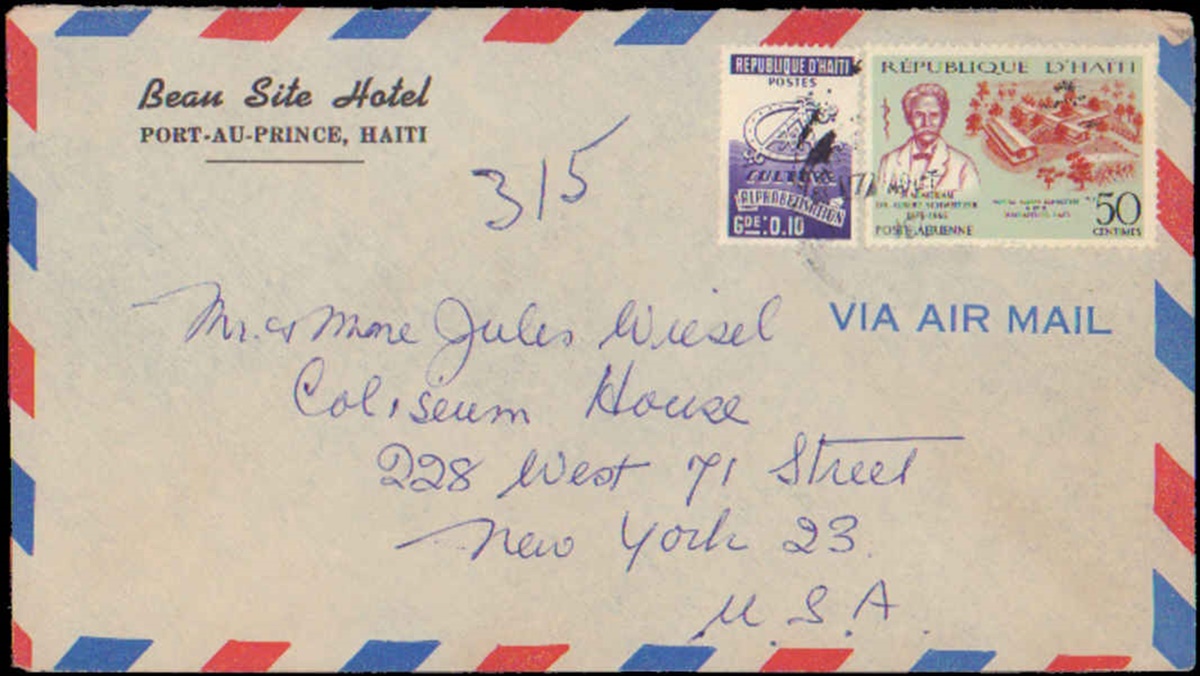 Beau Site Hotel
PORT-AU-PRINCE, HAITI
315
REPUBLIQUE D'HAITI
POSTES
CULTURE
ALPHABETISATION
GDE:0.10
RÉPUBLIQUE D'HAITI
IN MEMORIAM
DR. ALBERT SCHWEITZER
1875-1965
POSTE AERIENNE
50
CENTIMES
VIA AIR MAIL
Mr. & Mme Jules Wiesel
Coliseum House
228 West 71 Street
New York 23.
U.S.A.